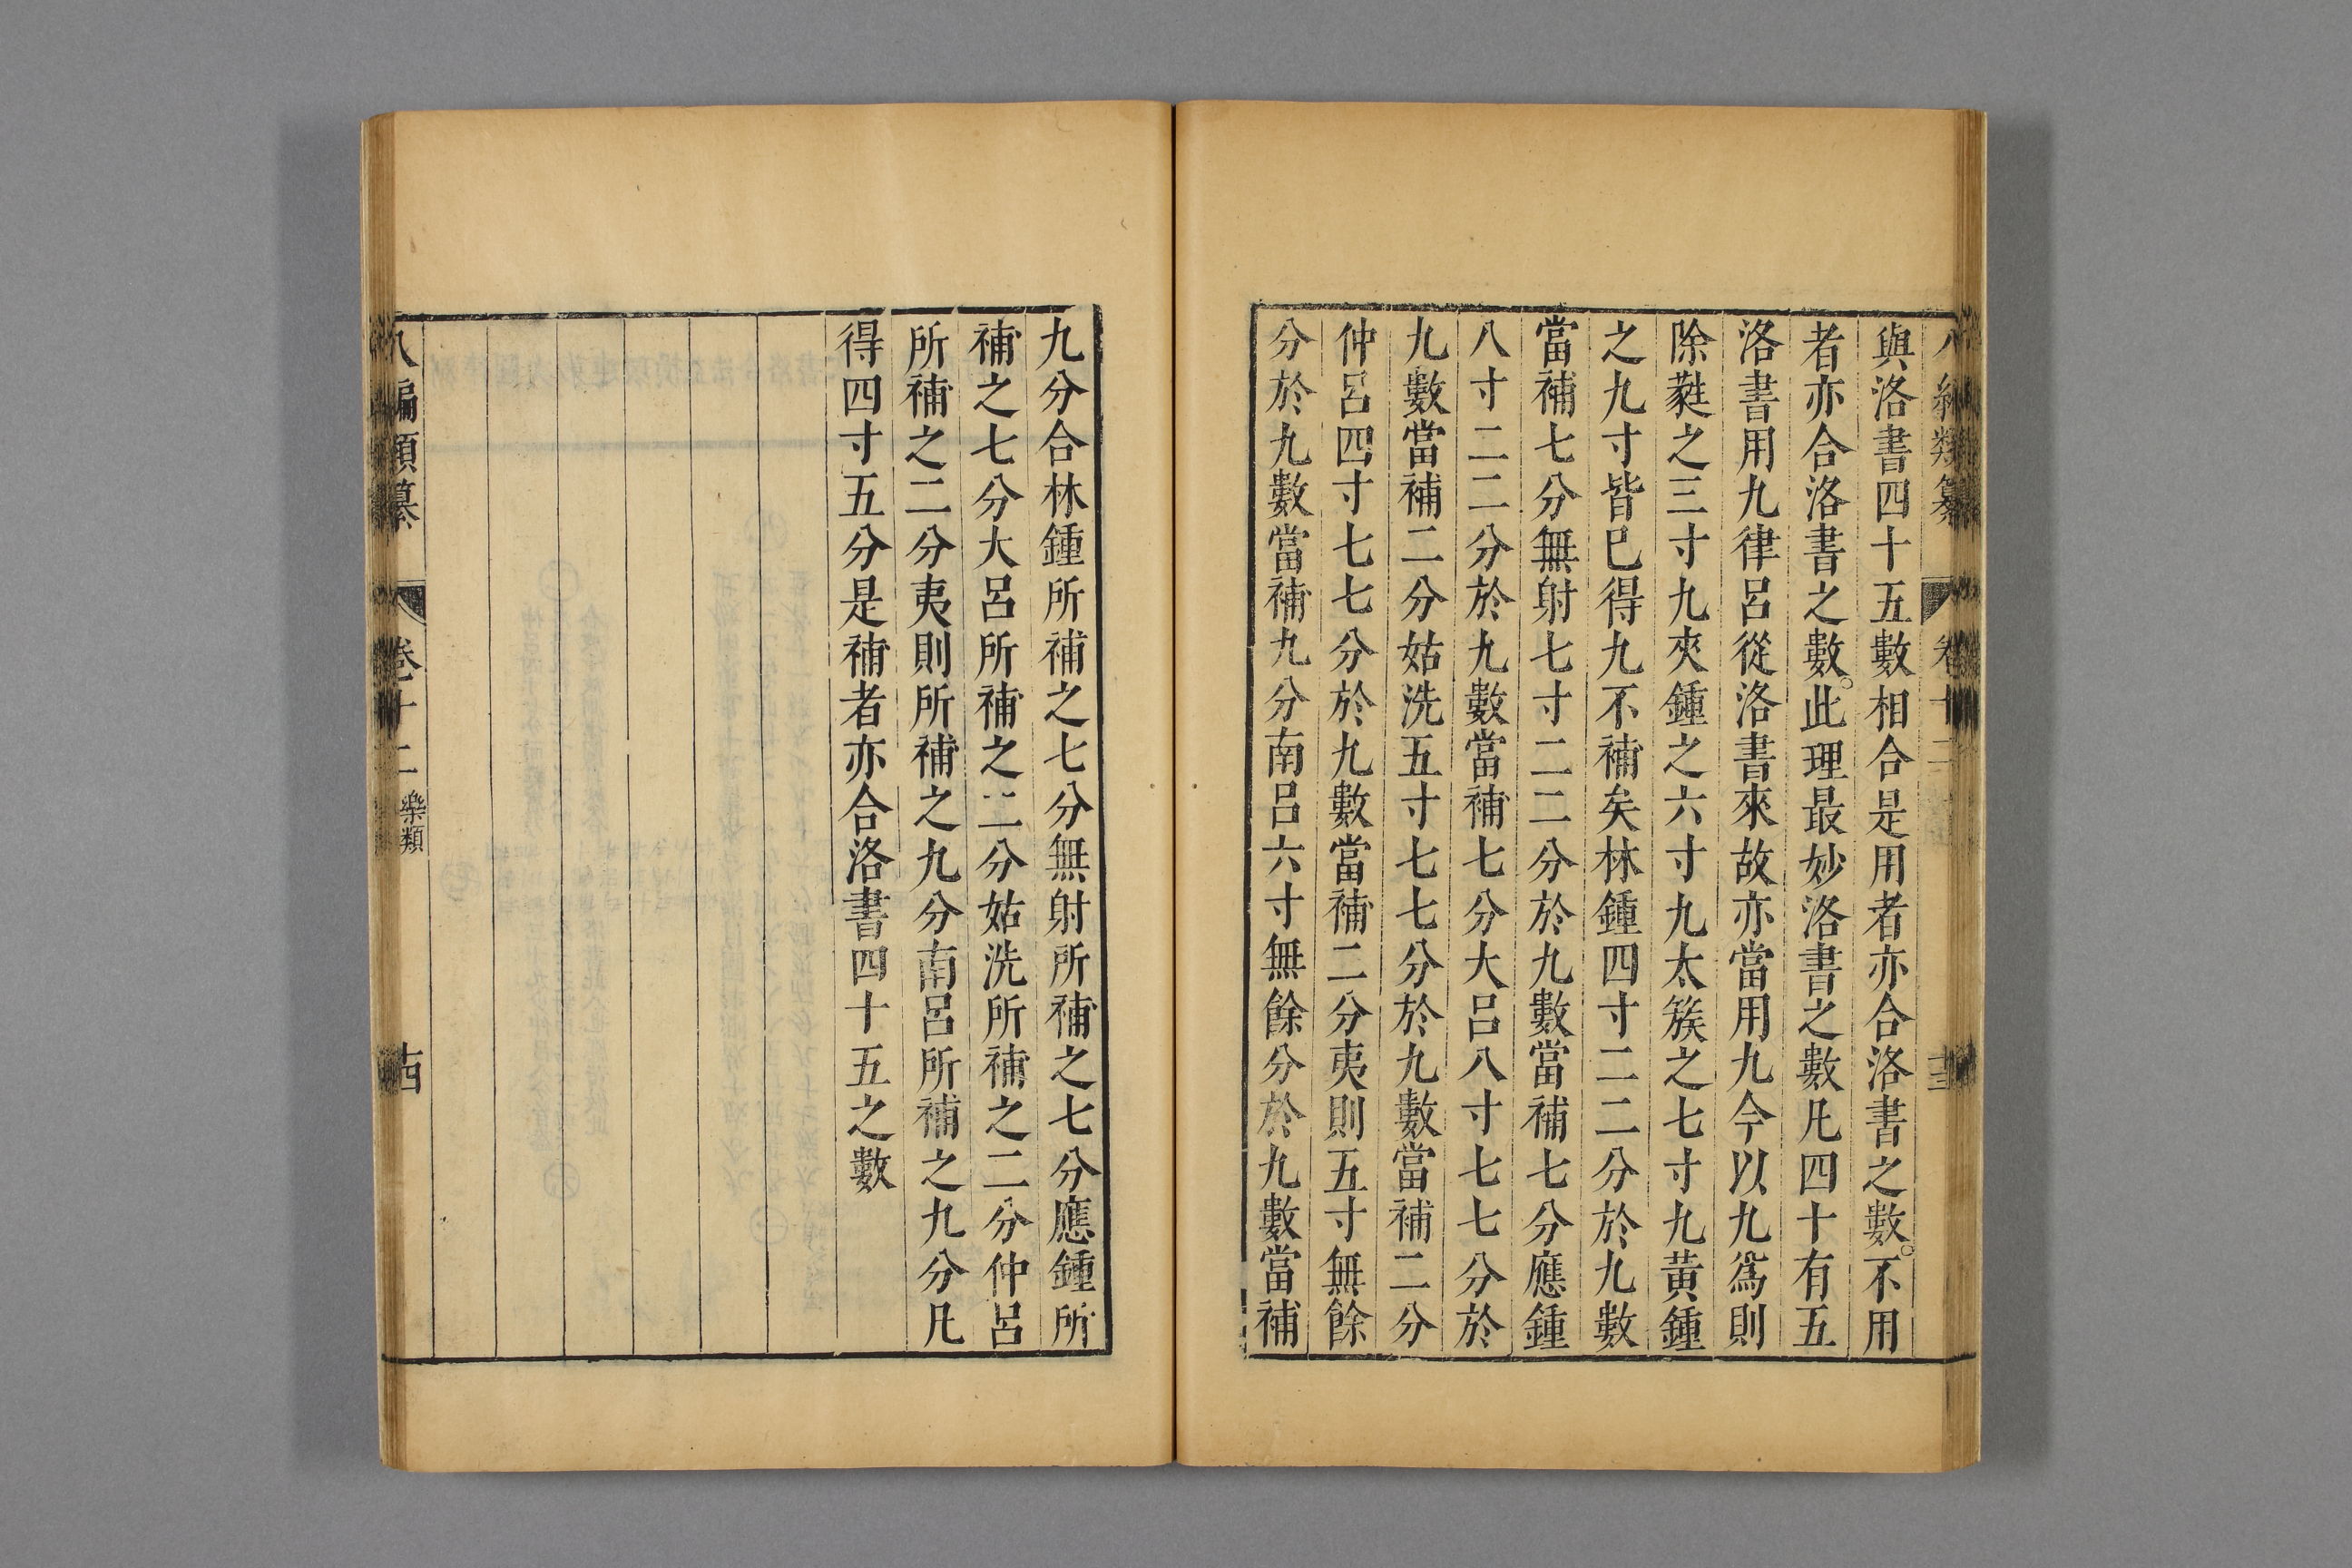 八編類纂 卷十二 十三
與洛書四十五數相合是用者亦合洛書之數。不用
者亦合洛書之數。此理最妙洛書之數凡四十有五
洛書用九律呂從洛書來故亦當用九今以九爲則
除蕤之三寸九夾鍾之六寸九太簇之七寸九黃鍾
之九寸皆已得九不補矣林鍾四寸二二分於九數
當補七分無射七寸二二分於九數當補七分應鍾
八寸二二分於九數當補七分大呂八寸七七分於
九數當補二分姑洗五寸七七分於九數當補二分
仲呂四寸七七分於九數當補二分夷則五寸無餘
分於九數當補九分南呂六寸無餘分於九數當補
九分合林鍾所補之七分無射所補之七分應鍾所
補之七分大呂所補之二分姑洗所補之二分仲呂
所補之二分夷則所補之九分南呂所補之九分凡
得四寸五分是補者亦合洛書四十五之數
八編類纂 卷十二 樂類 十四